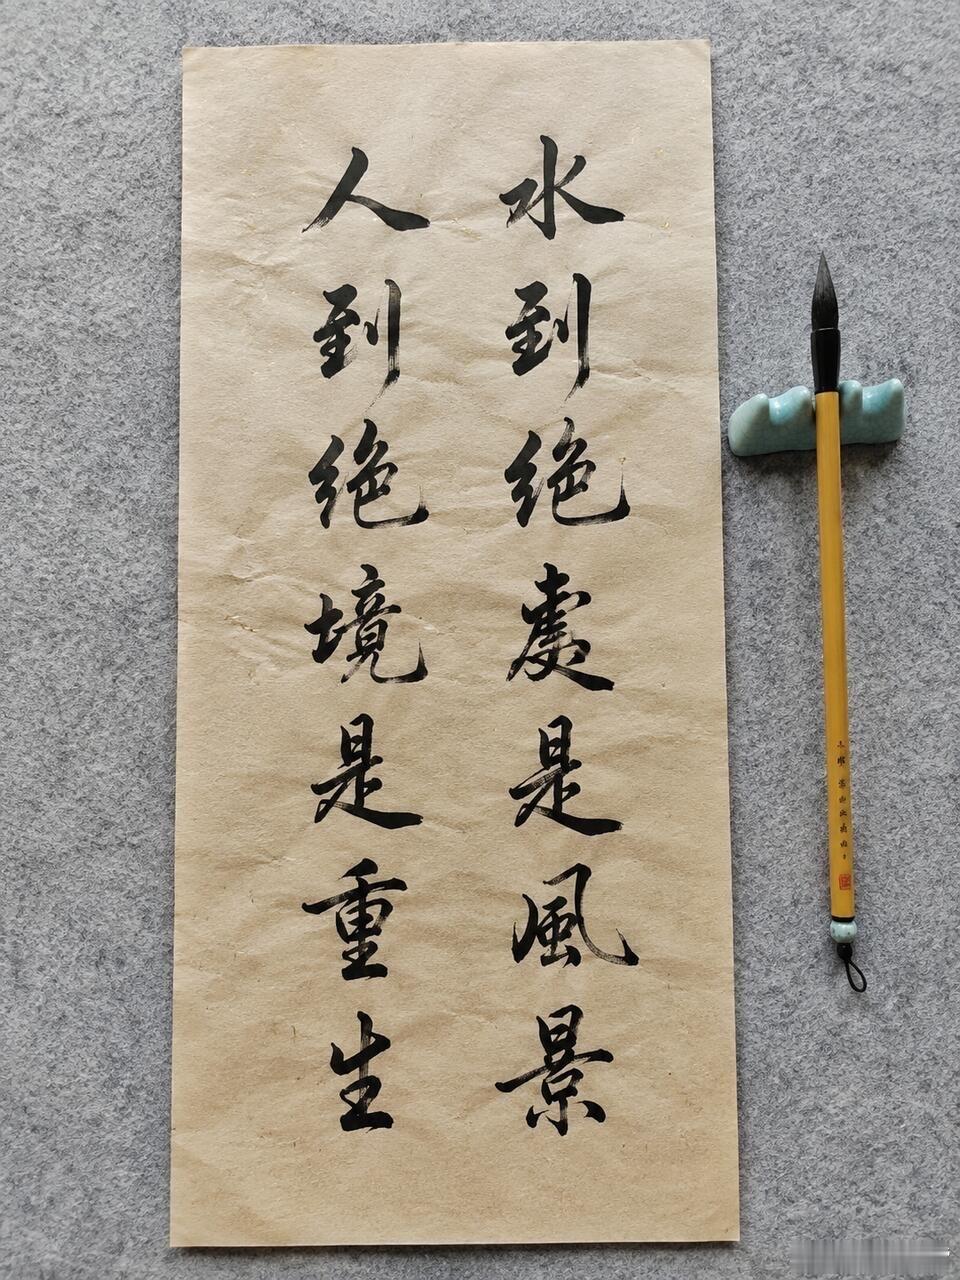 水到绝處是風景
人到绝境是重生